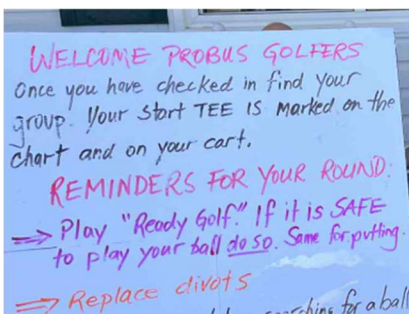 WELCOME PROBUS GOLFERS
Once you have checked in find your
group. Your Start TEE IS Marked on the
chart and on your cart.
REMINDERS FOR YOUR ROUND:
⇒ Play "Ready Golf." If it is SAFE
to play your ball do so. Same for putting.
⇒ Replace divots
for a ball